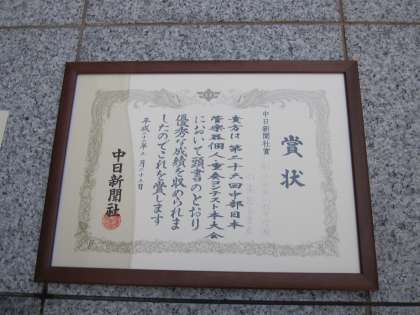 賞状
中日新聞社賞
貴方は第二十六回中部日本
管楽器個人・重奏コンテスト本大会
において頭書のとおり
優秀な成績を収められま
したのでこれを賞します
中日新聞社